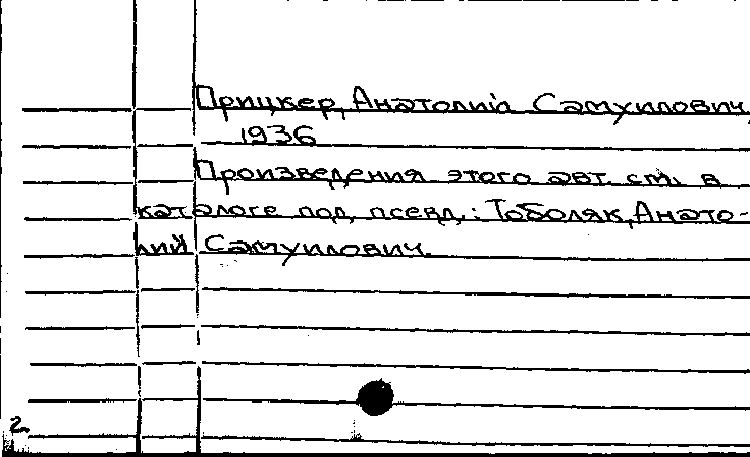 Прицкер, Анатолий Самуилович,
1936
Произведения этого авт. см. в
каталоге под псевд.: Тоболяк, Анато-
лий Самуилович.
2